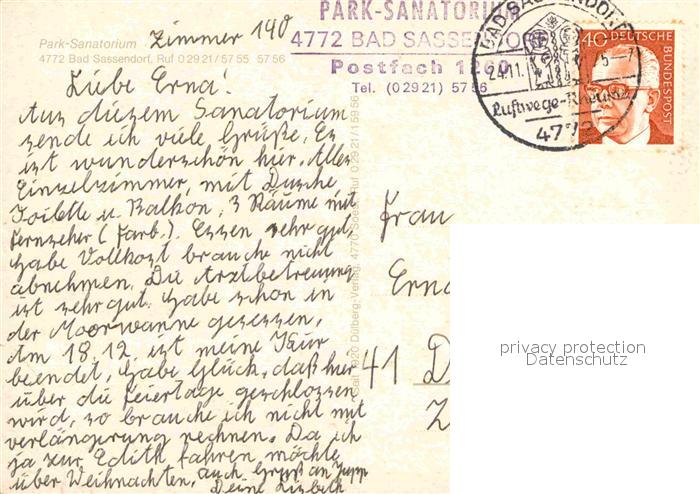 Park-Sanatorium
4772 Bad Sassendorf, Ruf 0 29 21 / 57 55 57 56
Zimmer 140
PARK-SANATORIUM
4772 BAD SASSENDORF
Postfach 1260
Tel. (0 29 21) 57 56
BAD SASSENDORF
24.11.75-7
Luftwege-Rheuma
4772
40 DEUTSCHE BUNDESPOST
Liebe Erna!
Aus diesem Sanatorium
sende ich viele Grüße. Es
ist wunderschön hier. Alles
Einzelzimmer, mit Dusche,
Toilette u. Balkon, 3 Räume mit
Fernseher (Farb.). Essen sehr gut,
habe Vollkost brauche nicht
abnehmen. Die Arztbetreuung
ist sehr gut. Habe schon in
der Moorwanne gesessen,
Am 18.12. ist meine Kur
beendet, habe Glück, daß hier
über die Feiertage geschlossen
wird, so brauche ich nicht mit
verlängerung rechnen. Da ich
ja zur Edith fahren möchte
über Weihnachten, auch Gruß an Jupp
Deine Lisbeth
Seit 1920 Dülberg-Verlag, 4770 Soest, Ruf 0 29 21 / 1 59 56
Frau
Erna
41 D
privacy protection
Datenschutz